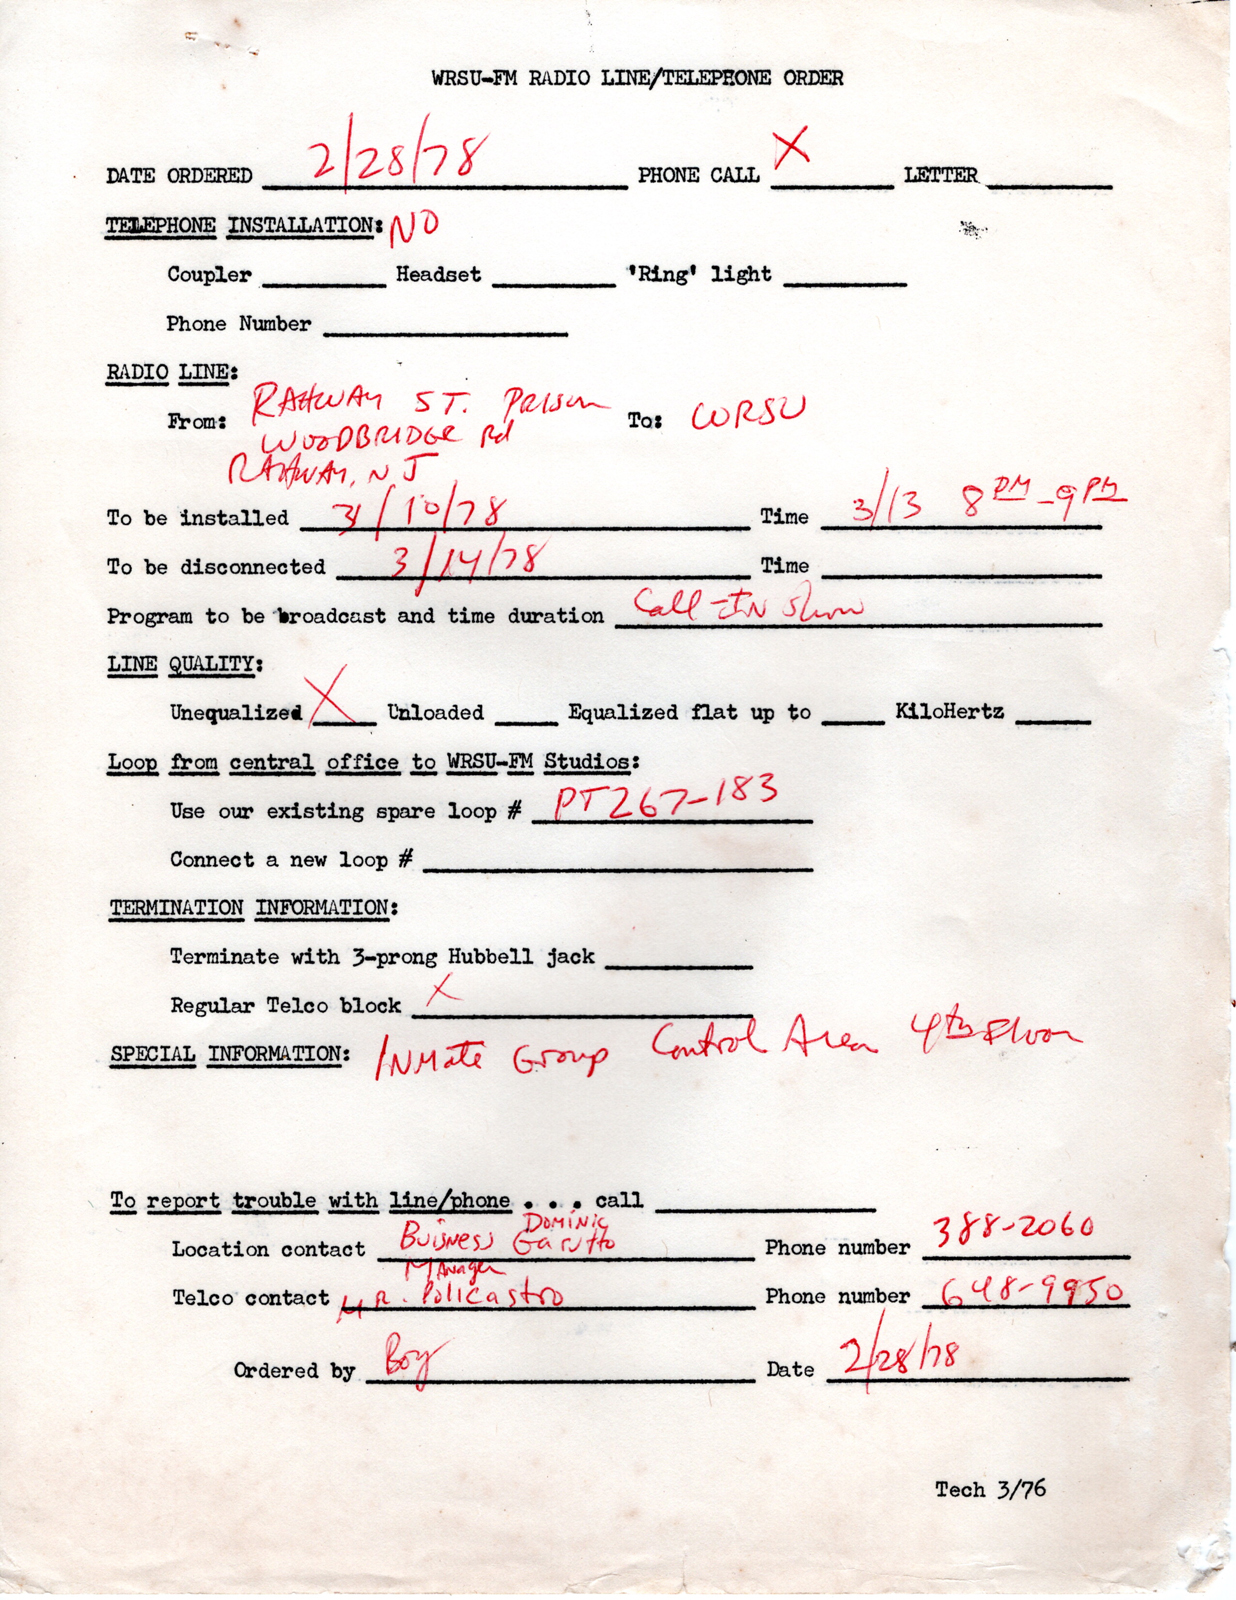 WRSU-FM RADIO LINE/TELEPHONE ORDER
DATE ORDERED 2/28/78 PHONE CALL X LETTER
TELEPHONE INSTALLATION: NO
Coupler Headset 'Ring' light
Phone Number
RADIO LINE:
From: RAHWAY ST. Prison To: WRSU
WOODBRIDGE Rd
RAHWAY, NJ
To be installed 3/10/78 Time 3/13 8PM-9PM
To be disconnected 3/14/78 Time
Program to be broadcast and time duration Call-IN Show
LINE QUALITY:
Unequalized X Unloaded Equalized flat up to KiloHertz
Loop from central office to WRSU-FM Studios:
Use our existing spare loop # PT267-183
Connect a new loop #
TERMINATION INFORMATION:
Terminate with 3-prong Hubbell jack
Regular Telco block X
SPECIAL INFORMATION: INMate Group Control Area 4th Floor
To report trouble with line/phone . . . call
Location contact Buisness Manager Dominic Garutto Phone number 388-2060
Telco contact MR. Policastro Phone number 648-9950
Ordered by Boy Date 2/28/78
Tech 3/76